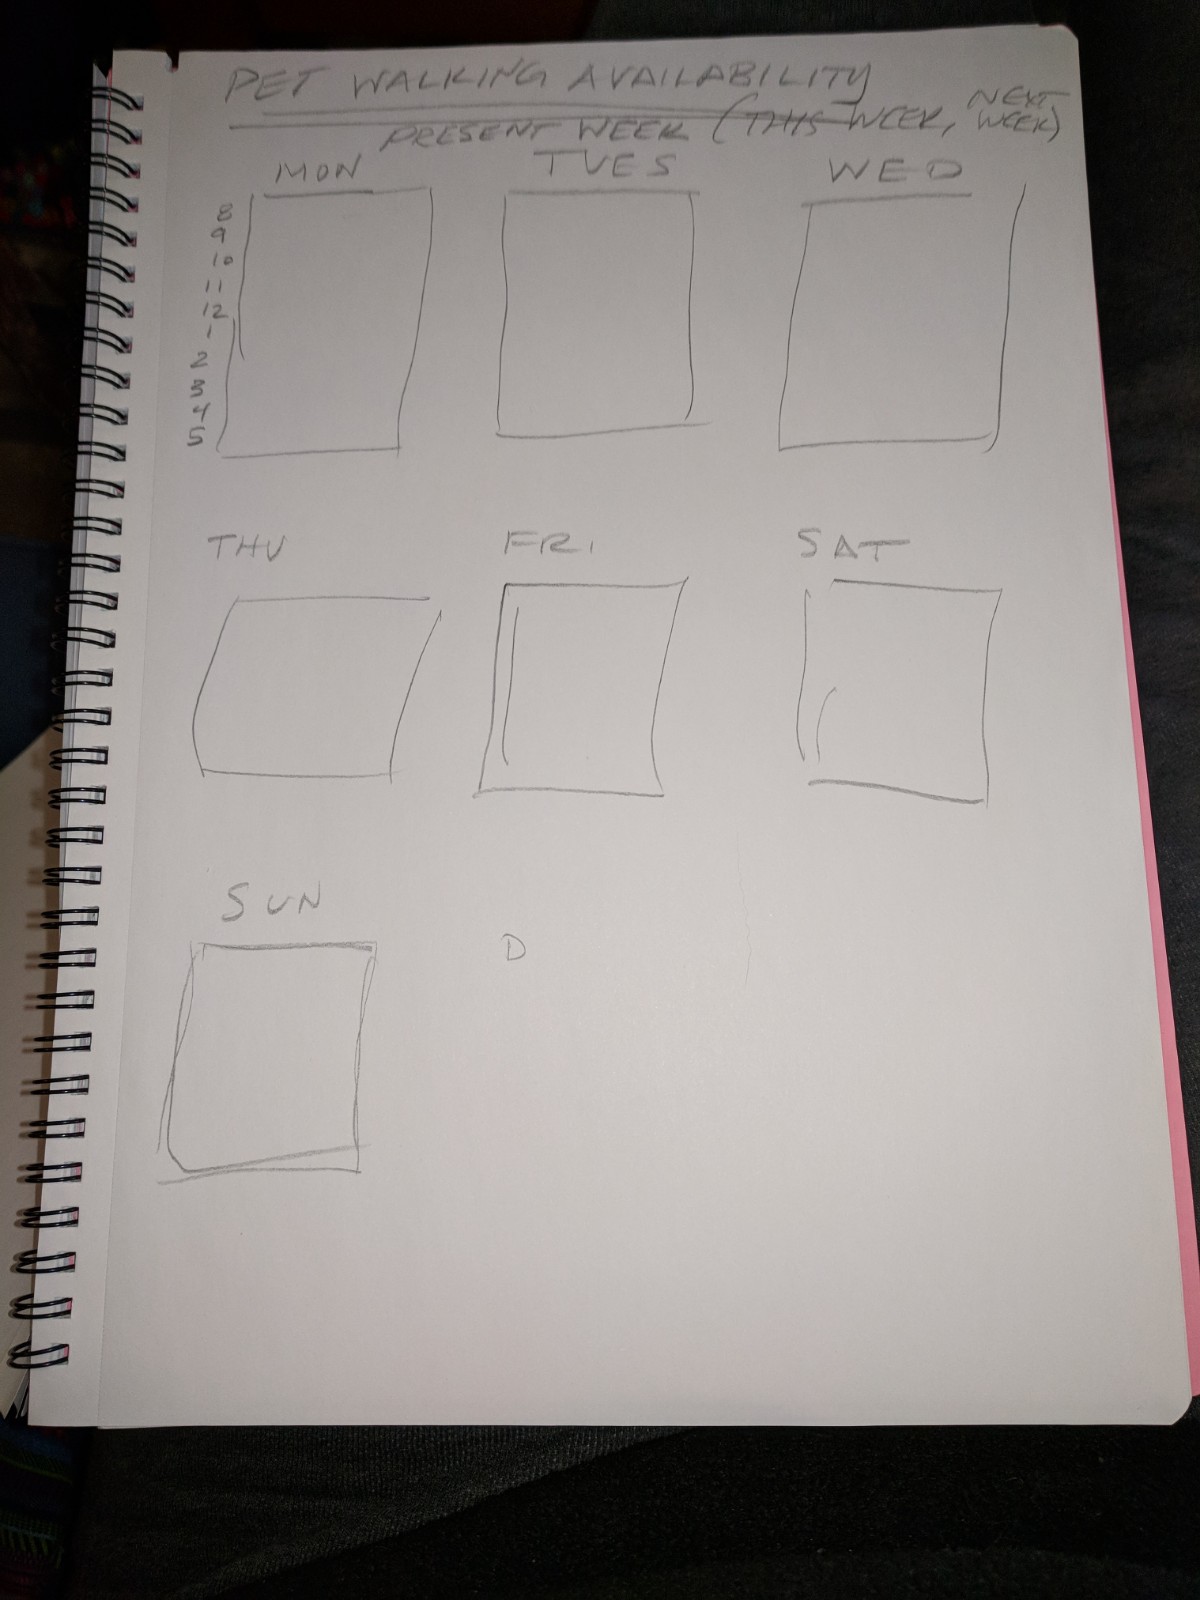 PET WALKING AVAILABILITY
PRESENT WEEK (THIS WEEK, NEXT WEEK)
MON TUES WED
8
9
10
11
12
1
2
3
4
5
THU FRI SAT
SUN D